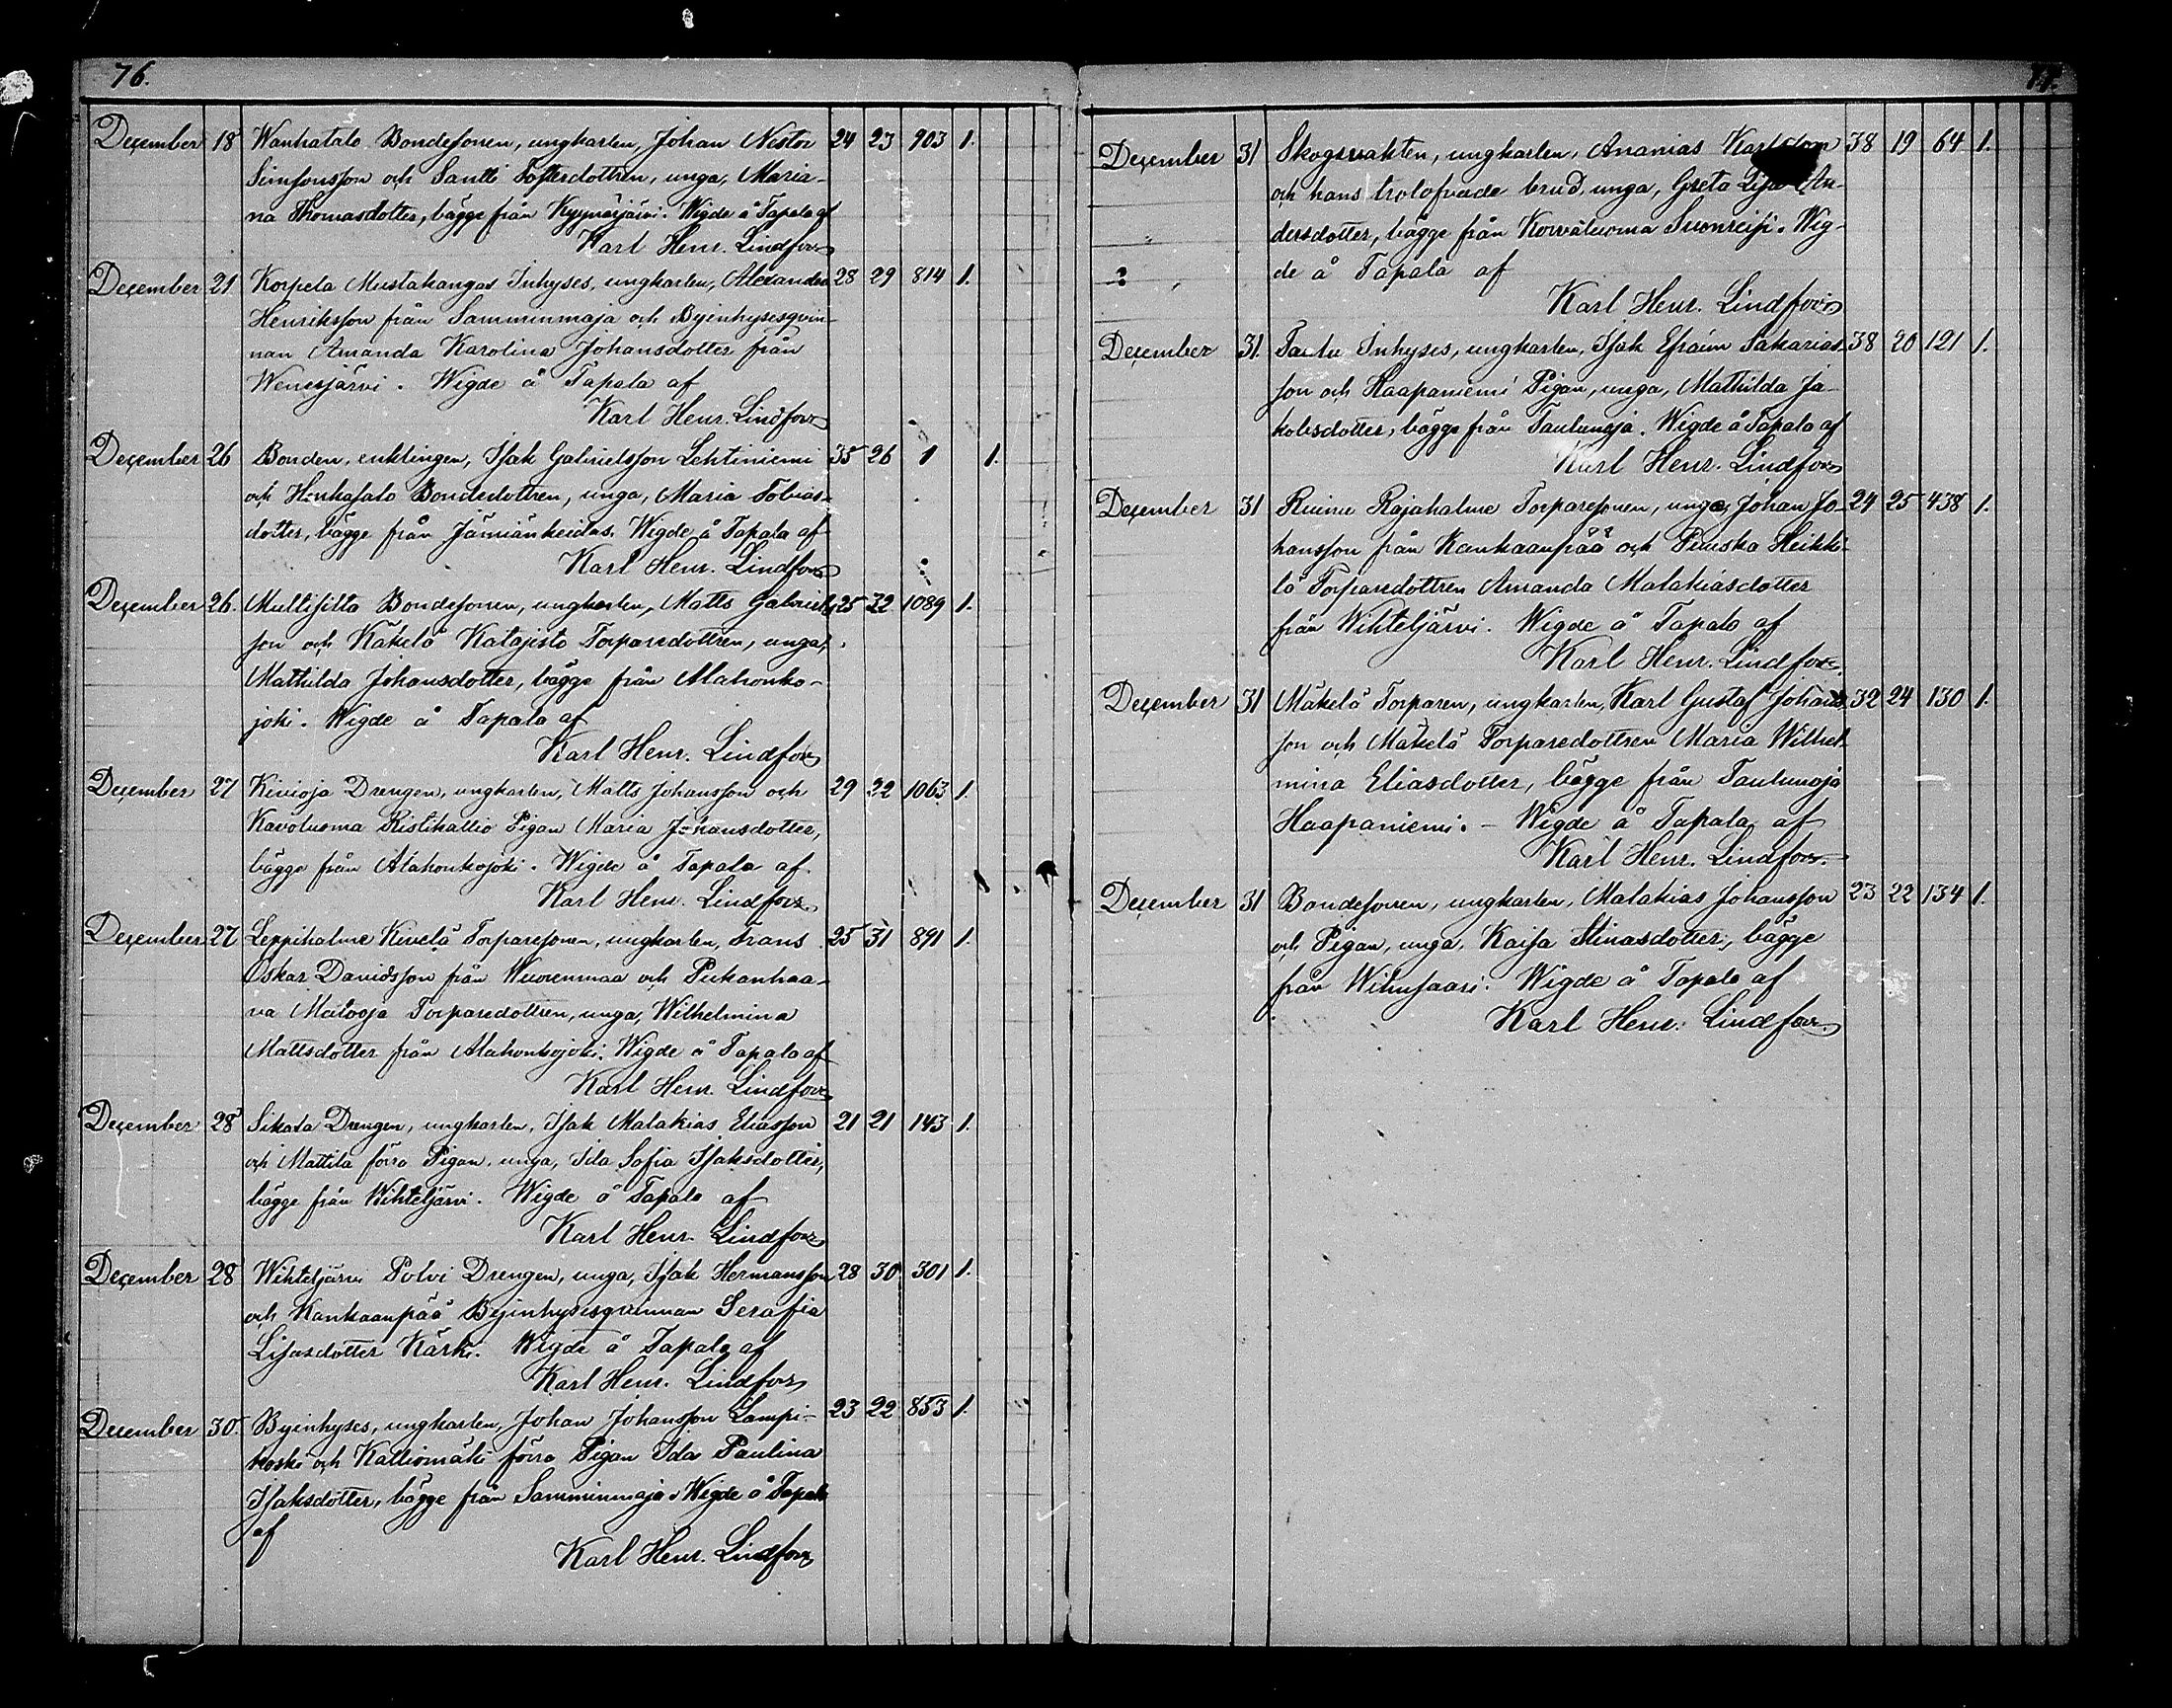 76.
December 18 Wanhatalo Bondesonen, ungkarlen, Johan Nestor 24 23 903 1.
Simsonsson och Santti Fosterdottren, unga, Maria-
na Thomasdotter, bägge från Kyynärjärvi. Wigde å Tapala af
Karl Henr. Lindfors
December 21 Korpela Mustakangas Inhyses, ungkarlen, Alexander 28 29 814 1.
Henriksson från Samminmaja och Byinhysesqvin-
nan Amanda Karolina Johansdotter från
Wenesjärvi. Wigde å Tapala af
Karl Henr. Lindfors
December 26 Bonden, enklingen, Isak Gabrielsson Lehtiniemi 35 26 1 1.
och Honkasalo Bondedottren, unga, Maria Tobias-
dotter, bägge från Jämiänkeidas. Wigde å Tapala af
Karl Henr. Lindfors
December 26. Multisilta Bondesonen, ungkarlen, Matts Gabriels- 25 32 1089 1.
son och Käkelä Katajisto Torparedottren, unga,
Mathilda Johansdotter, bägge från Alahonko-
joki. Wigde å Tapala af
Karl Henr. Lindfors
December 27 Kivioja Drengen, ungkarlen, Matts Johansson och 29 22 1063 1.
Ristikallio Pigan Maria Johansdotter,
bägge från Alahonkojoki. Wigde å Tapala af
Karl Henr. Lindfors
December 27 Leppihalme Kivelä Torparesonen, ungkarlen, Frans 25 31 891 1.
Oskar Davidsson från Wuorenmaa och Pukanhaa-
va Torparedottren, unga, Wilhelmina
Mattsdotter från Alahonkojoki. Wigde å Tapala af
Karl Henr. Lindfors
December 28 Sikala Drengen, ungkarlen, Isak Malakias Eliasson 21 21 143 1.
och Mattila förra Pigan, unga, Ida Sofia Isaksdotter,
bägge från Wihteljärvi. Wigde å Tapala af
Karl Henr. Lindfors
December 28 Wihteljärvi Polvi Drengen, unga, Isak Hermansson 28 30 301 1.
och Kankaanpää Byinhysesqvinnan Serafia
Lisasdotter Kärki. Wigde å Tapala af
Karl Henr. Lindfors
December 30. Byinhyses, ungkarlen, Johan Johansson Lampi- 23 22 853 1.
koski och Kalliomäki förra Pigan Ida Paulina
Isaksdotter, bägge från Samminmaja. Wigde å Tapala
af
Karl Henr. Lindfors
77.
December 31 Skogsvakten, ungkarlen, Ananias 38 19 64 1.
och hans trolofvade brud, unga, Greta Lisa An-
dersdotter, bägge från Korvaluoma Wig-
de å Tapala af
Karl Henr. Lindfors
December 31. Inhyses, ungkarlen, Isak Efraim Sakarias- 38 20 121 1.
son och Haapaniemi Pigan, unga, Mathilda Ja-
kobsdotter, bägge från Taulunoja. Wigde å Tapala af
Karl Henr. Lindfors
December 31 Rajahalme Torparesonen, unga, Johan Jo- 24 25 438 1.
hansson från Kankaanpää och Heikki-
lä Torparedottren Amanda Malakiasdotter
från Wihteljärvi. Wigde å Tapala af
Karl Henr. Lindfors.
December 31 Mäkelä Torparen, ungkarlen, Karl Gustaf Johans- 32 24 130 1.
son och Mäkelä Torparedottren Maria Wilhel-
mina Eliasdotter, bägge från Taulunoja
Haapaniemi. - Wigde å Tapala af
Karl Henr. Lindfors.
December 31 Bondesonen, ungkarlen, Malakias Johansson 23 22 134 1.
och Pigan, unga, Kaisa Stinasdotter, bägge
från Wihusaari. Wigde å Tapala af
Karl Henr. Lindfors